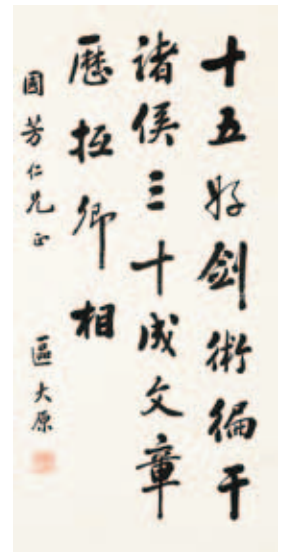 十五好劍術徧干
諸侯三十成文章
歷抵卿相
國芳仁兄正
區大原